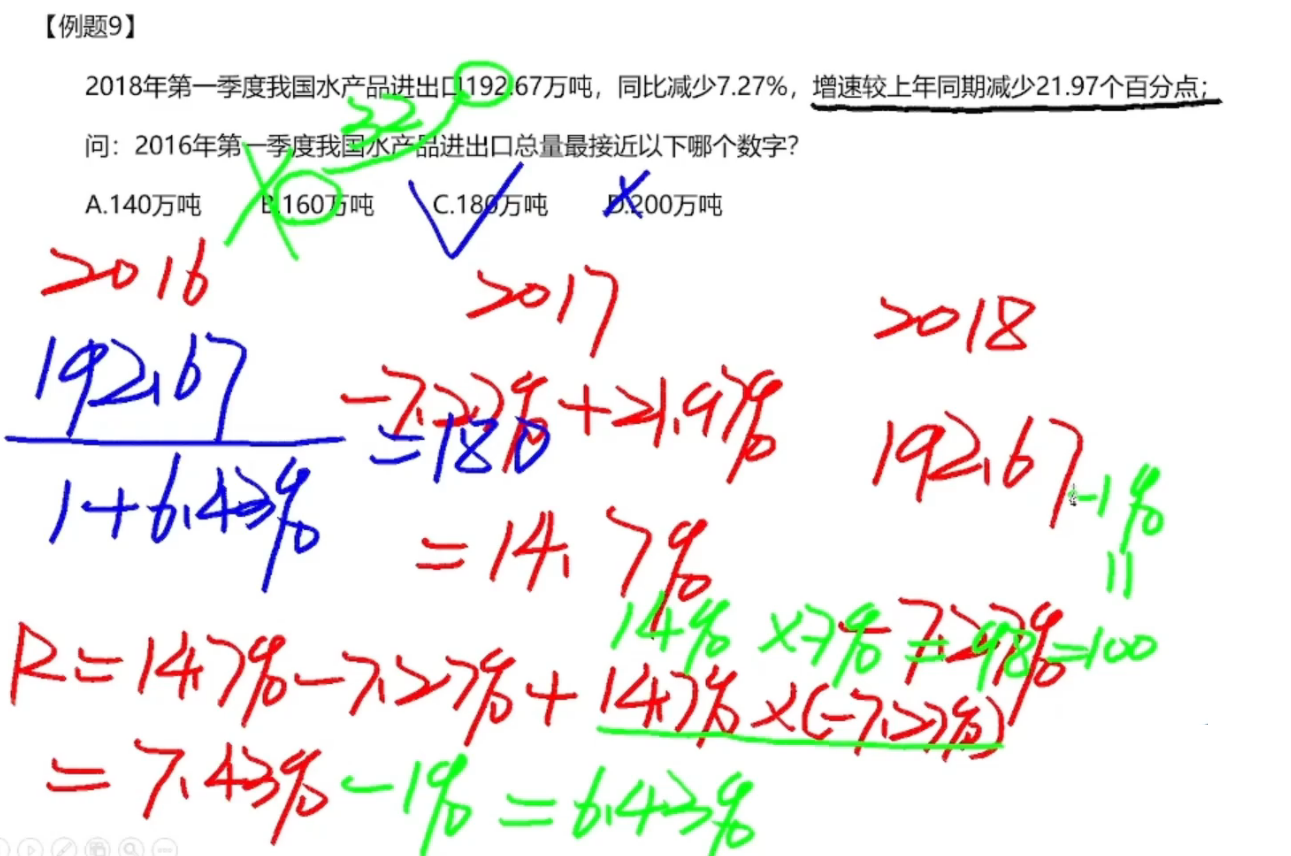 【例题9】
2018年第一季度我国水产品进出口192.67万吨，同比减少7.27%，增速较上年同期减少21.97个百分点；
32
问：2016年第一季度我国水产品进出口总量最接近以下哪个数字？
A.140万吨 B.160万吨 C.180万吨 D.200万吨
2016 2017 2018
192.67 -7.27%+21.97% 192.67 -1%
1+6.43% =180
=14.7% =
14% ×7% = 98 =100 -7.27%
R=14.7%-7.27%+14.7%×(-7.27%)
=7.43%-1%=6.43%